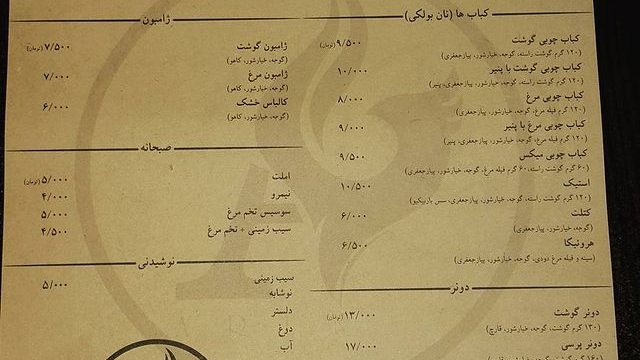 کباب ها (نان بولکی)
کباب چوبی گوشت ۹/۵۰۰ (تومان)
(۱۲۰ گرم گوشت راسته، گوجه، خیارشور، پیازجعفری)
کباب چوبی گوشت با پنیر ۱۰/۰۰۰
(۱۲۰ گرم گوشت راسته، گوجه، خیارشور، پیازجعفری، پنیر)
کباب چوبی مرغ ۸/۰۰۰
(۱۲۰ گرم فیله مرغ، گوجه، خیارشور، پیازجعفری)
کباب چوبی مرغ با پنیر ۹/۰۰۰
(۱۲۰ گرم فیله مرغ، گوجه، خیارشور، پیازجعفری، پنیر)
کباب چوبی میکس ۹/۵۰۰
(۶۰ گرم گوشت راسته، ۶۰ گرم فیله مرغ، گوجه، خیارشور، پیازجعفری)
استیک ۱۰/۵۰۰
(۱۲۰ گرم گوشت راسته، گوجه، خیارشور، پیازجعفری، سس باربیکیو)
کتلت ۶/۰۰۰
(گوجه، خیارشور، پیازجعفری)
هرونیکا ۶/۵۰۰
(سینه و فیله مرغ دودی، گوجه، خیارشور، پیازجعفری)
دونر
دونر گوشت ۱۳/۰۰۰ (تومان)
(۱۳۰ گرم گوشت، گوجه، خیارشور، قارچ)
دونر پرسی ۱۷/۰۰۰
ژامبون
ژامبون گوشت ۷/۵۰۰ (تومان)
(گوجه، خیارشور، کاهو)
ژامبون مرغ ۷/۰۰۰
(گوجه، خیارشور، کاهو)
کالباس خشک ۶/۰۰۰
(گوجه، خیارشور، کاهو)
صبحانه
املت ۵/۰۰۰ (تومان)
نیمرو ۴/۰۰۰
سوسیس تخم مرغ ۵/۰۰۰
سیب زمینی + تخم مرغ ۴/۵۰۰
نوشیدنی
سیب زمینی ۵/۰۰۰
نوشابه
دلستر
دوغ
آب